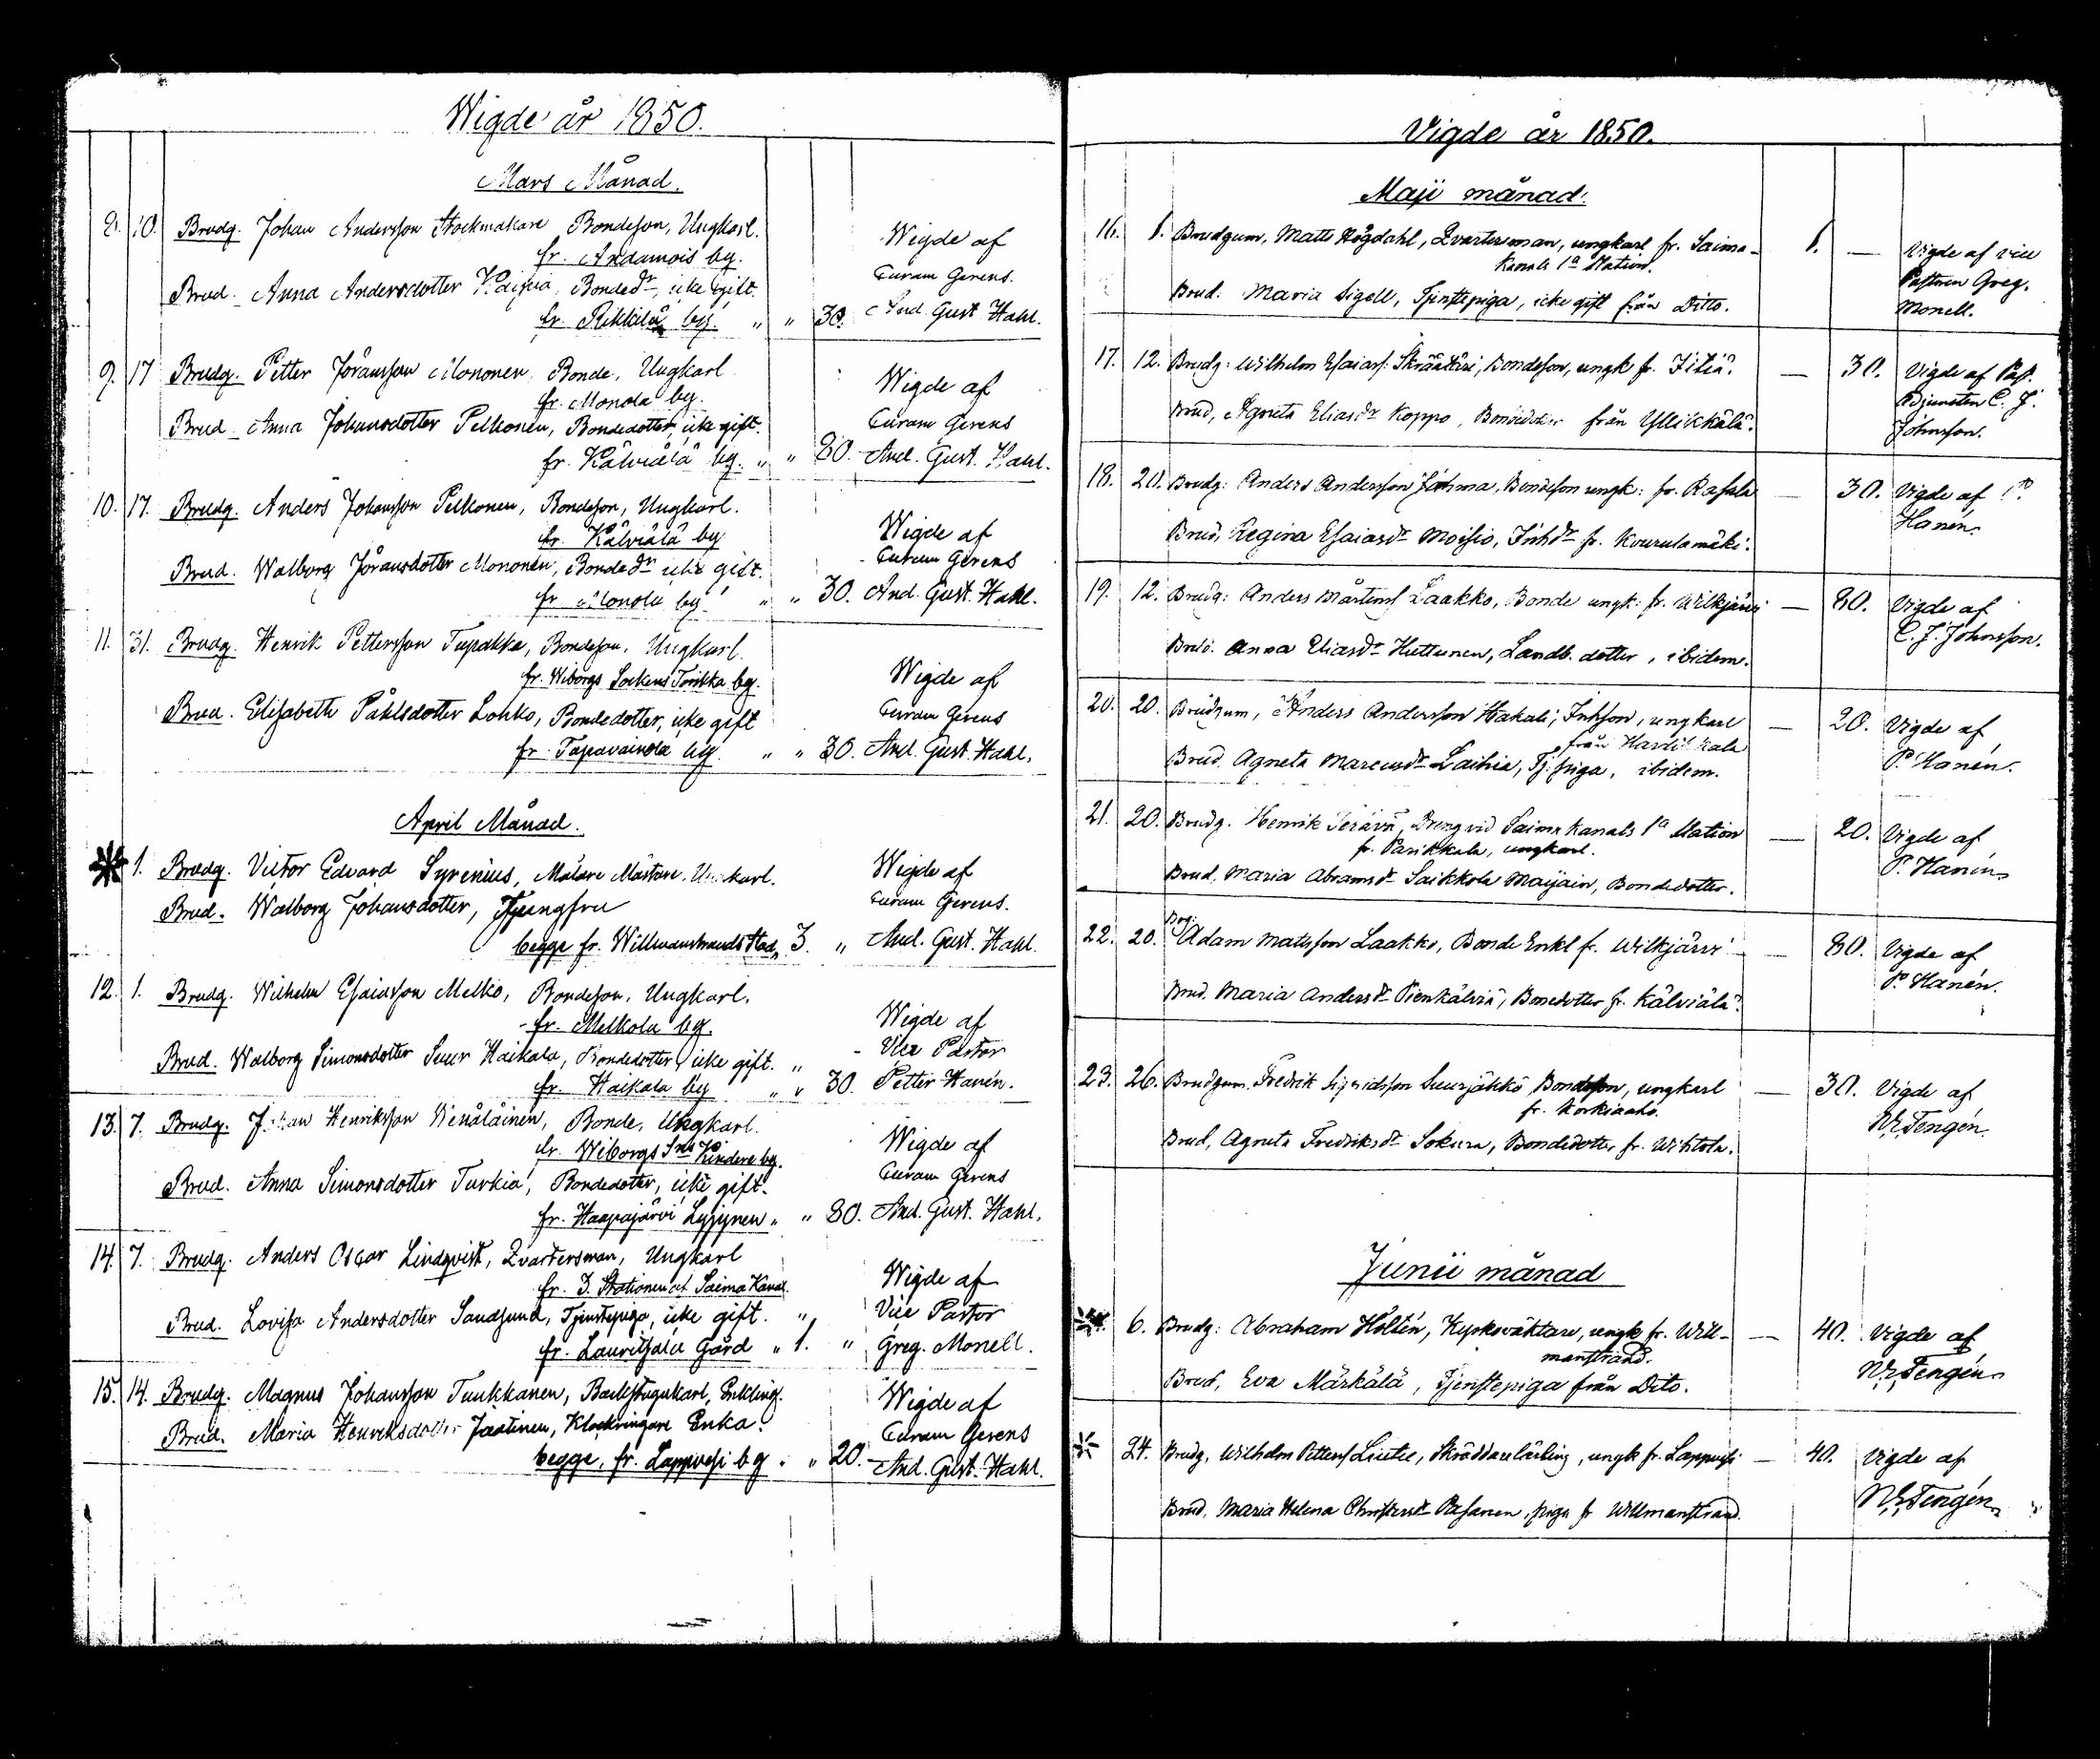 Wigde år 1850.
Mars Månad.
8. 10. Brudg. Johan Andersson Stockmakare Bondeson, Ungkarl.
fr. Andamois by.
Brud. Anna Andersdotter Bondedr, icke gift.
fr. Rikkilä by. " " 30.
Wigde af
Curam Gerens.
And. Gust. Hahl.
9. 17 Brudg. Petter Jöransson Mononen Bonde, Ungkarl
fr. Monola by.
Brud Anna Johansdotter Pelkonen, Bondedotter, icke gift.
fr. Kälviälä by. " " 80.
Wigde af
Curam Gerens
And. Gust. Hahl.
10. 17. Brudg. Anders Johansson Pelkonen, Bondeson, Ungkarl.
fr. Kälviälä by
Brud. Walborg Jöransdotter Mononen, Bondedr icke gift.
fr Monola by " " 30.
Wigde af
Curam Gerens
And. Gust. Hahl.
11. 31. Brudg. Henrik Pettersson Tupakka, Bondeson, Ungkarl.
fr. Wiborgs Sockens Torikka by.
Brud. Elisabeth Påhlsdotter Lohko, Bondedotter, icke gift
fr. Tapavainola by. " " 30.
Wigde af
Curam Gerens
And. Gust. Hahl.
April Månad.
1. Brudg. Victor Edvard Syrenius, Målare Mästare, Ungkarl.
Brud. Walborg Johansdotter, Jungfru
begge fr. Willmanstrands Stad, 3. "
Wigde af
Curam Gerens.
And. Gust. Hahl.
12. 1. Brudg. Wilhelm Esaiasson Melko, Bondeson, Ungkarl.
fr. Melkola by.
Brud. Walborg Simonsdotter Suur Haikala, Bondedotter, icke gift. "
fr. Haikala by " " 30.
Wigde af
Vice Pastor
Petter Hanén.
13. 7. Brudg. Johan Henriksson Wenäläinen, Bonde, Ungkarl.
fr. Wiborgs Sns Kindere by.
Brud. Anna Simonsdotter Turkia, Bondedotter, icke gift.
fr. Haapajärvi Lyjynen " " 80.
Wigde af
Curam Gerens
And. Gust. Hahl.
14. 7. Brudg. Anders Oscar Lindqvist, Qvartersman, Ungkarl
fr. 3. Stationen af Saima Kanal.
Brud. Lovisa Andersdotter Sandsund, Tjenstepiga, icke gift. "
fr. Lauritsala Gård " 1. "
Wigde af
Vice Pastor
Greg. Monell.
15. 14. Brudg. Magnus Johansson Tuukkanen, Backstugukarl, Enkling.
Brud. Maria Henriksdotter Jaatinen, Klockringare Enka.
begge, fr. Lappvesi by. " 20.
Wigde af
Curam Gerens
And. Gust. Hahl.
Vigde år 1850.
Maji månad.
16. 1. Brudgum, Matts Högdahl, Qvartersman, ungkarl fr. Saima- 1. —
Kanals 1a Station.
Brud: Maria Sigell, Tjenstepiga, icke gift från Ditto.
Vigde af vice
Pastoren Greg.
Monell.
17. 12. Brudg: Wilhelm Esaiass: Skräätäri, Bondeson, ungk fr. Iitiä. — 30.
Brud, Agneta Eliasdr Koppo, Bondedotter från Yllikkälä.
Vigde af Past.
Adjuncten C. J.
Johnsson.
18. 20. Brudg: Anders Andersson Johma, Bondeson ungk: fr. Rasala — 30.
Brud, Regina Esaiasdr Moisio, Inhdr fr. Kourulamäki.
Vigde af P.
Hanén.
19. 12. Brudg: Anders Mårtenss Laakko, Bonde ungk: fr. Wilkjärvi — 80.
Brud. Anna Eliasdr Huttunen, Landb. dotter, ibidem.
Vigde af
C. J. Johnsson.
20. 20. Brudgum, Anders Andersson Hakali, Inhson, ungkarl — 20.
från Hardikkala
Brud. Agneta Marcusdr Laihia, Tj. piga, ibidem.
Vigde af
P. Hanén.
21. 20. Brudg. Henrik Terävä, Dreng vid Saima Kanals 1a Station — 20.
fr. Parikkala, ungkarl.
Brud, Maria Abramsdr Saikkola Maijain, Bondedotter.
Vigde af
P. Hanén
22. 20. Brg: Adam Matsson Laakko, Bonde Enkl fr. Wilkjärvi — 80.
Brud. Maria Andersdr Pienkälviä, Bondedotter fr. Kälviälä.
Vigde af
P. Hanén.
23. 26. Brudgum, Fredrik Sigfridsson Suurjähkö, Bondeson, ungkarl — 30.
fr. Korkiaaho.
Brud, Agneta Fredriksdr Sokura, Bondedotter fr. Wihtola.
Vigde af
Tengén.
Junii månad
6. Brudg: Abraham Holtén, Kyrkoväktare, ungk fr. Will- — 40.
manstrand.
Brud, Eva Märkälä, Tjenstepiga från Dito.
Vigde af
Tengén
24. Brudg, Wilhelm Petterss Liutu, Skräddarelärling, ungk fr. Lappvesi — 40.
Brud, Maria Helena Christersdr Pasanen, piga fr Willmanstrand.
Vigde af
Tengén